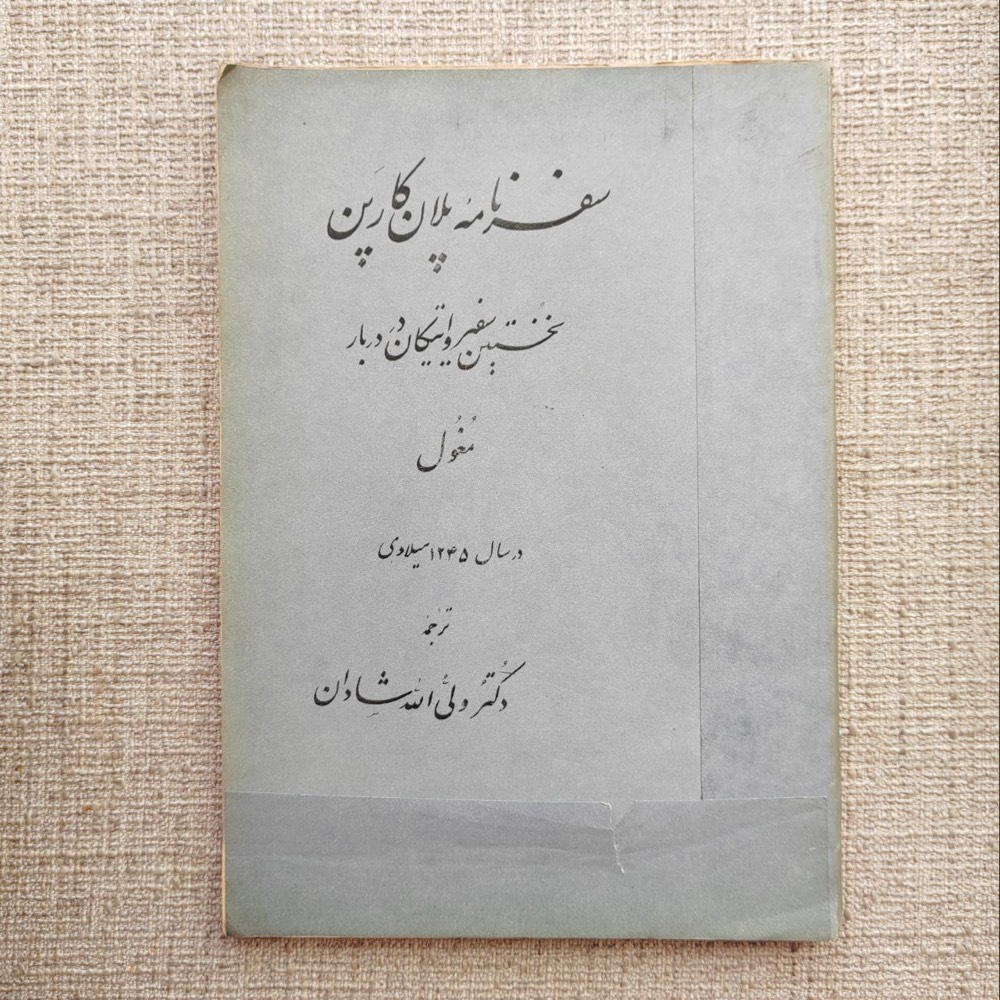 سفرنامهٔ پلان کارپَن
نخستین سفیر واتیکان در دربار
مُغُول
در سال ۱۲۴۵ میلادی
ترجمهٔ
دکتر ولیُّ اللّٰه شادان